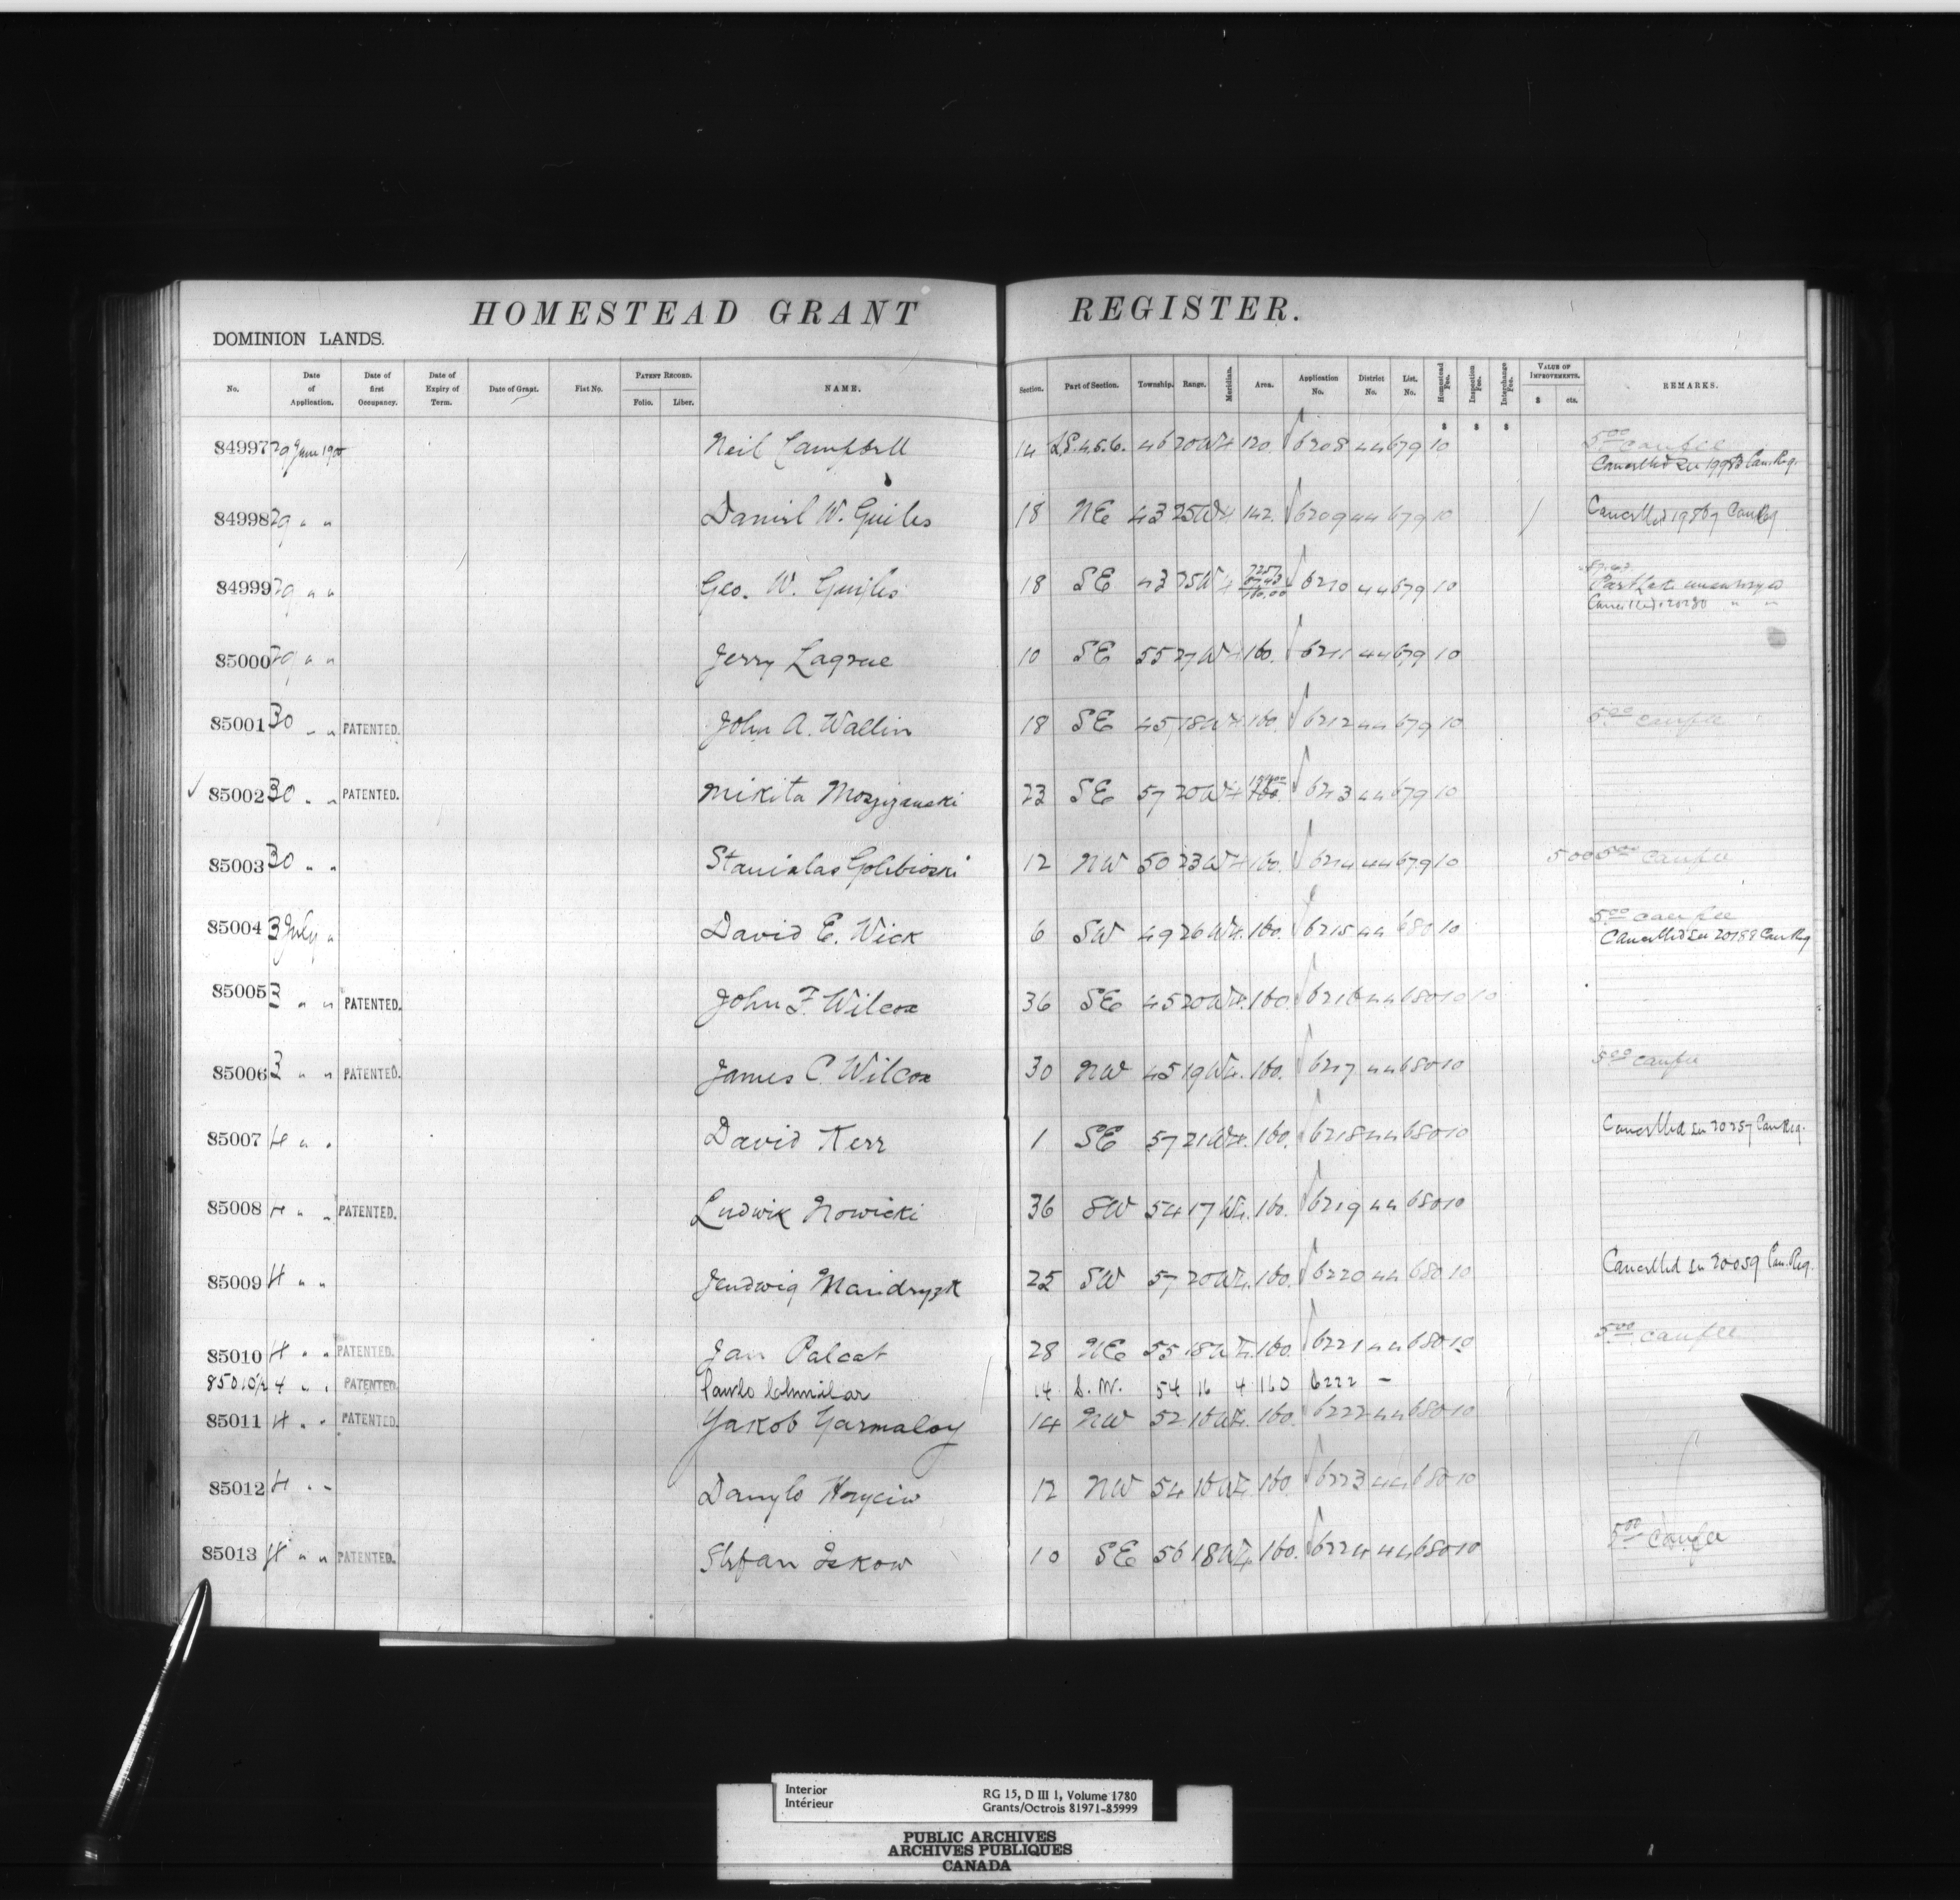 HOMESTEAD GRANT REGISTER.
DOMINION LANDS.
No. Date of Application. Date of first Occupancy. Date of Expiry of Term. Date of Grant. Fiat No. PATENT RECORD. Folio. Liber. NAME. Section. Part of Section. Township. Range. Meridian. Area. Application No. District No. List. No. Homestead Fee. Inspection Fee. Interchange Fee. VALUE OF IMPROVEMENTS. $ cts. REMARKS.
$ $ $
84997 29 June 1900 Neil Campbell 14 LS. 4.5.6. 46 20 W4 120. 6208 44 679 10 5.00 canfee
Cancelled See 19983 Can. Reg.
84998 29 " " Daniel W. Guiles 18 NE 43 25 W4 142. 6209 44 679 10 Cancelled 19867 Can Reg
84999 29 " " Geo. W. Guiles 18 SE 43 25 W4 160.00 6210 44 679 10
Cancelled 20280 " "
85000 29 " " Jerry Lagrue 10 SE 55 27 W4 160. 6211 44 679 10
85001 30 " " PATENTED. John A. Wallin 18 SE 45 18 W4 160. 6212 44 679 10 5.00 canfee
85002 30 " " PATENTED. Mikita 23 SE 57 20 W4 160. 6213 44 679 10
85003 30 " " Stanislas Golebioski 12 NW 50 23 W4 160. 6214 44 679 10 500 5.00 canfee
85004 3 July " David E. Wick 6 SW 49 26 W4. 160. 6215 44 680 10 5.00 canfee
Cancelled See 20188 Can Reg
85005 3 " " PATENTED. John F. Wilcox 36 SE 45 20 W4. 160. 6216 44 680 10 10
85006 3 " " PATENTED. James C. Wilcox 30 NW 45 19 W4. 160. 6217 44 680 10 5.00 canfee
85007 4 " " David Kerr 1 SE 57 21 W4. 160. 6218 44 680 10 Cancelled See 20257 Can Reg.
85008 4 " " PATENTED. Ludwik Nowicki 36 SW 54 17 W4. 160. 6219 44 680 10
85009 4 " " Jendwig Mandryzk 25 SW 57 20 W4. 160. 6220 44 680 10 Cancelled See 20059 Can. Reg.
85010 4 " " PATENTED. Jan Palcat 28 NE 55 18 W4. 160. 6221 44 680 10 5.00 canfee
85010½ 4 " " PATENTED. Pawlo Chmilar 14 S.W. 54 16 4 160 6222 –
85011 4 " " PATENTED. Yakob Yarmaloy 14 NW 52 16 W4. 160. 6222 44 680 10
85012 4 " " Danylo Hryciw 12 NW 54 16 W4. 160. 6223 44 680 10
85013 4 " " PATENTED. Stefan Iskow 10 SE 56 18 W4. 160. 6224 44 680 10 5.00 canfee
Interior
Intérieur
RG 15, D III 1, Volume 1780
Grants/Octrois 81971-85999
PUBLIC ARCHIVES
ARCHIVES PUBLIQUES
CANADA